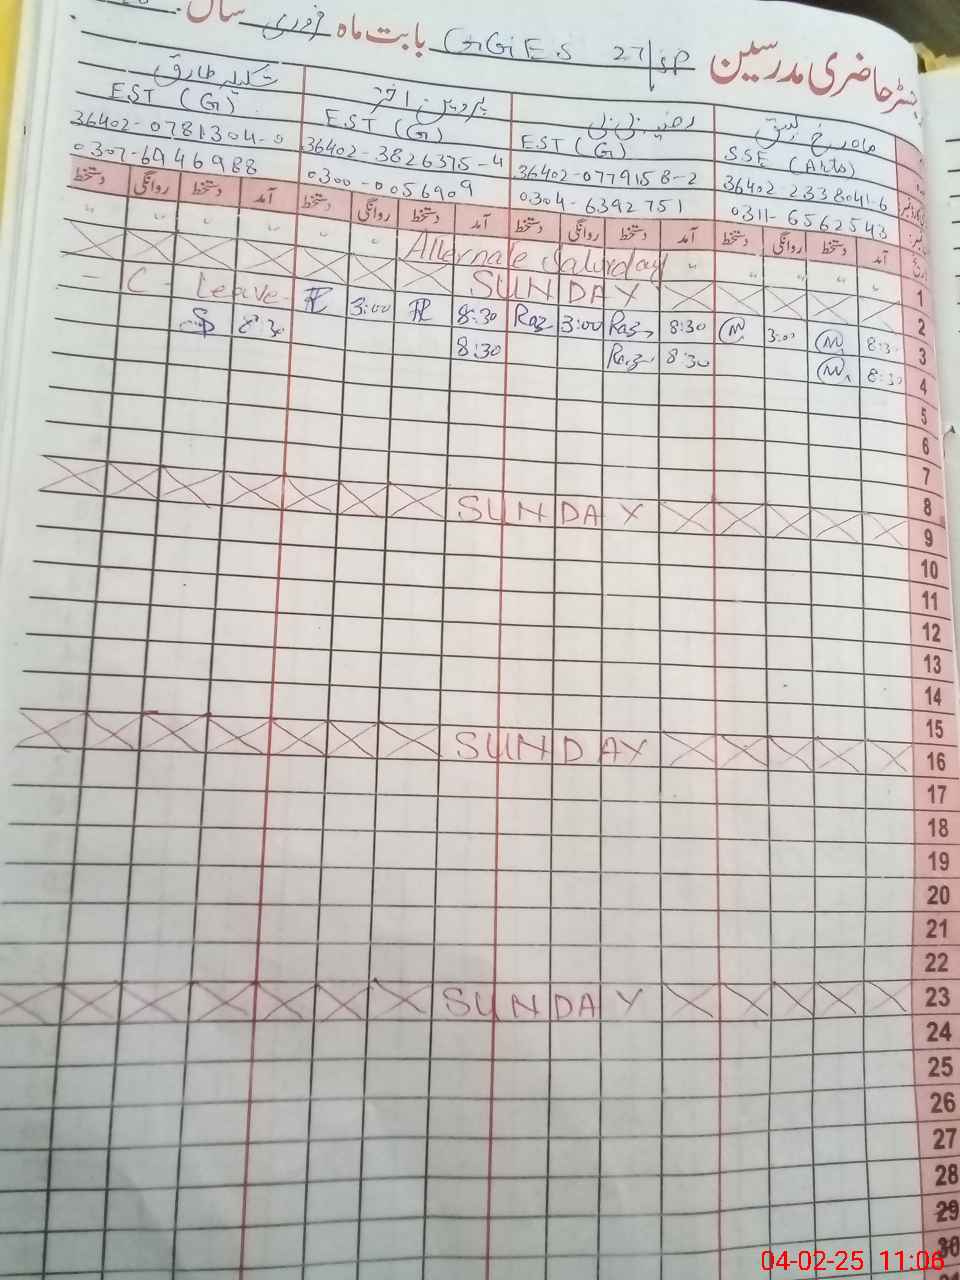 رجسٹر حاضری مدرسین GGES 27/SP بابت ماہ فروری سال
ماہ رخ رضیہ بی بی پروین اختر شکیلہ طارق
SSE (Arts) EST (G) EST (G) EST (G)
36402-2338041-6 36402-0779158-2 36402-3826375-4 36402-0781304-0
0311-6562543 0304-6392751 0300-0056909 0307-6946988
آمد دستخط روانگی دستخط آمد دستخط روانگی دستخط آمد دستخط روانگی دستخط آمد دستخط روانگی دستخط
1 Alternate Saturday
2 SUNDAY
3 8:30 3:00 8:30 Raz 3:00 Raz 8:30 3:00 C-Leave
4 8:30 8:30 Raz 8:30 8:30
5
6
7
8
9 SUNDAY
10
11
12
13
14
15
16 SUNDAY
17
18
19
20
21
22
23 SUNDAY
24
25
26
27
28
29
30
04-02-25 11:06